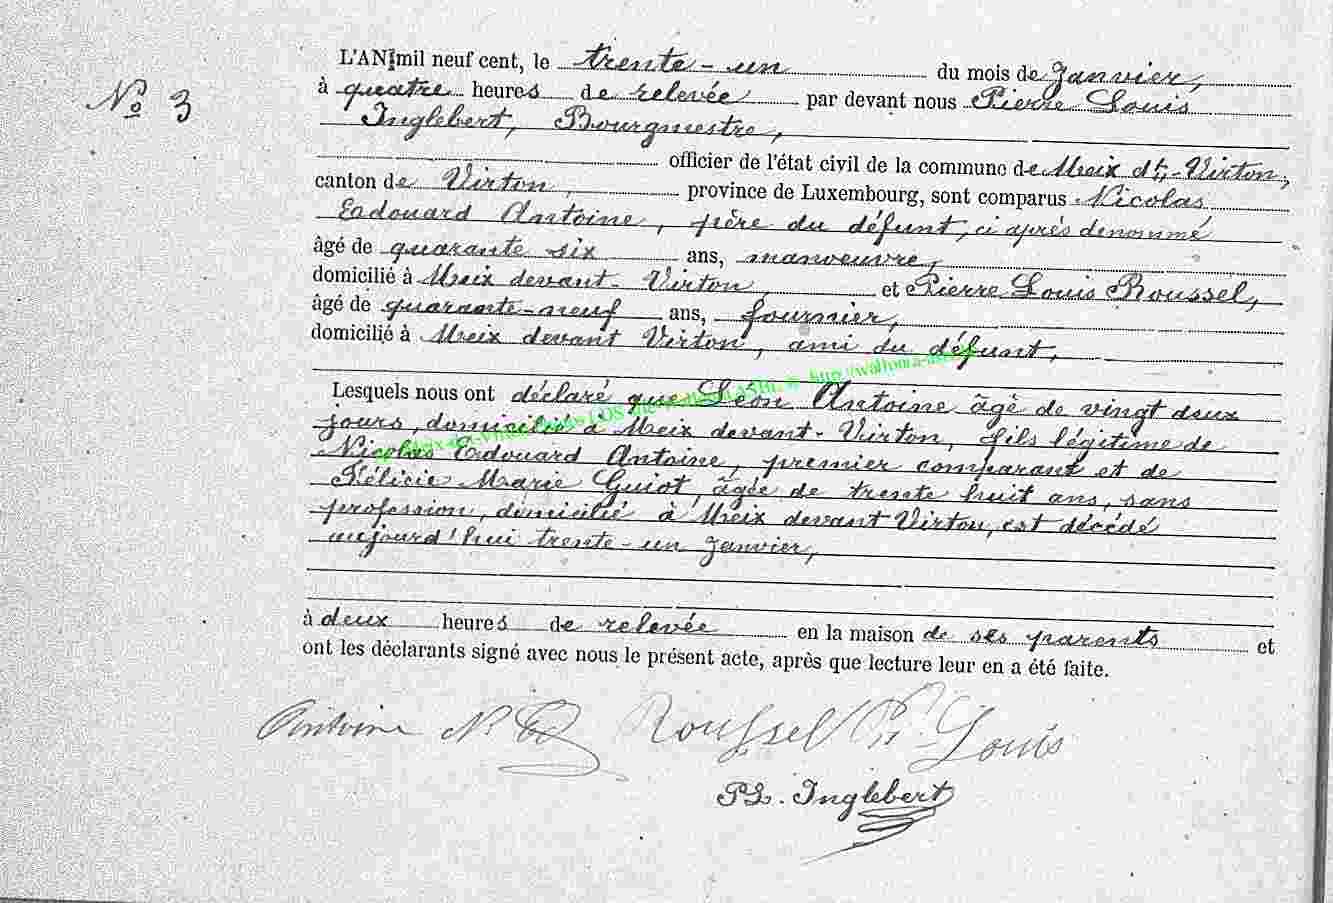 L'AN mil neuf cent, le trente-un du mois de Janvier,
N° 3
à quatre heures de relevée par devant nous Pierre Louis
Inglebert, Bourgmestre,
officier de l'état civil de la commune de Meix dt,-Virton,
canton de Virton, province de Luxembourg, sont comparus Nicolas
Edouard Antoine, père du défunt, ci après dénommé
âgé de quarante six ans, manoeuvre,
domicilié à Meix devant-Virton, et Pierre Louis Roussel,
âgé de quarante-neuf ans, fournier,
domicilié à Meix devant Virton, ami du défunt,
Lesquels nous ont déclaré que Léon Antoine âgé de vingt deux
jours, domicilié à Meix devant-Virton, fils légitime de
Nicolas Edouard Antoine, premier comparant et de
Félicie Marie Guiot, âgée de trente huit ans, sans
profession, domicilié à Meix devant Virton, est décédé
aujourd'hui trente-un Janvier,
à deux heures de relevée en la maison de ses parents et
ont les déclarants signé avec nous le présent acte, après que lecture leur en a été faite.
Antoine N. Ed Roussel Pr. Louis
PL. Inglebert